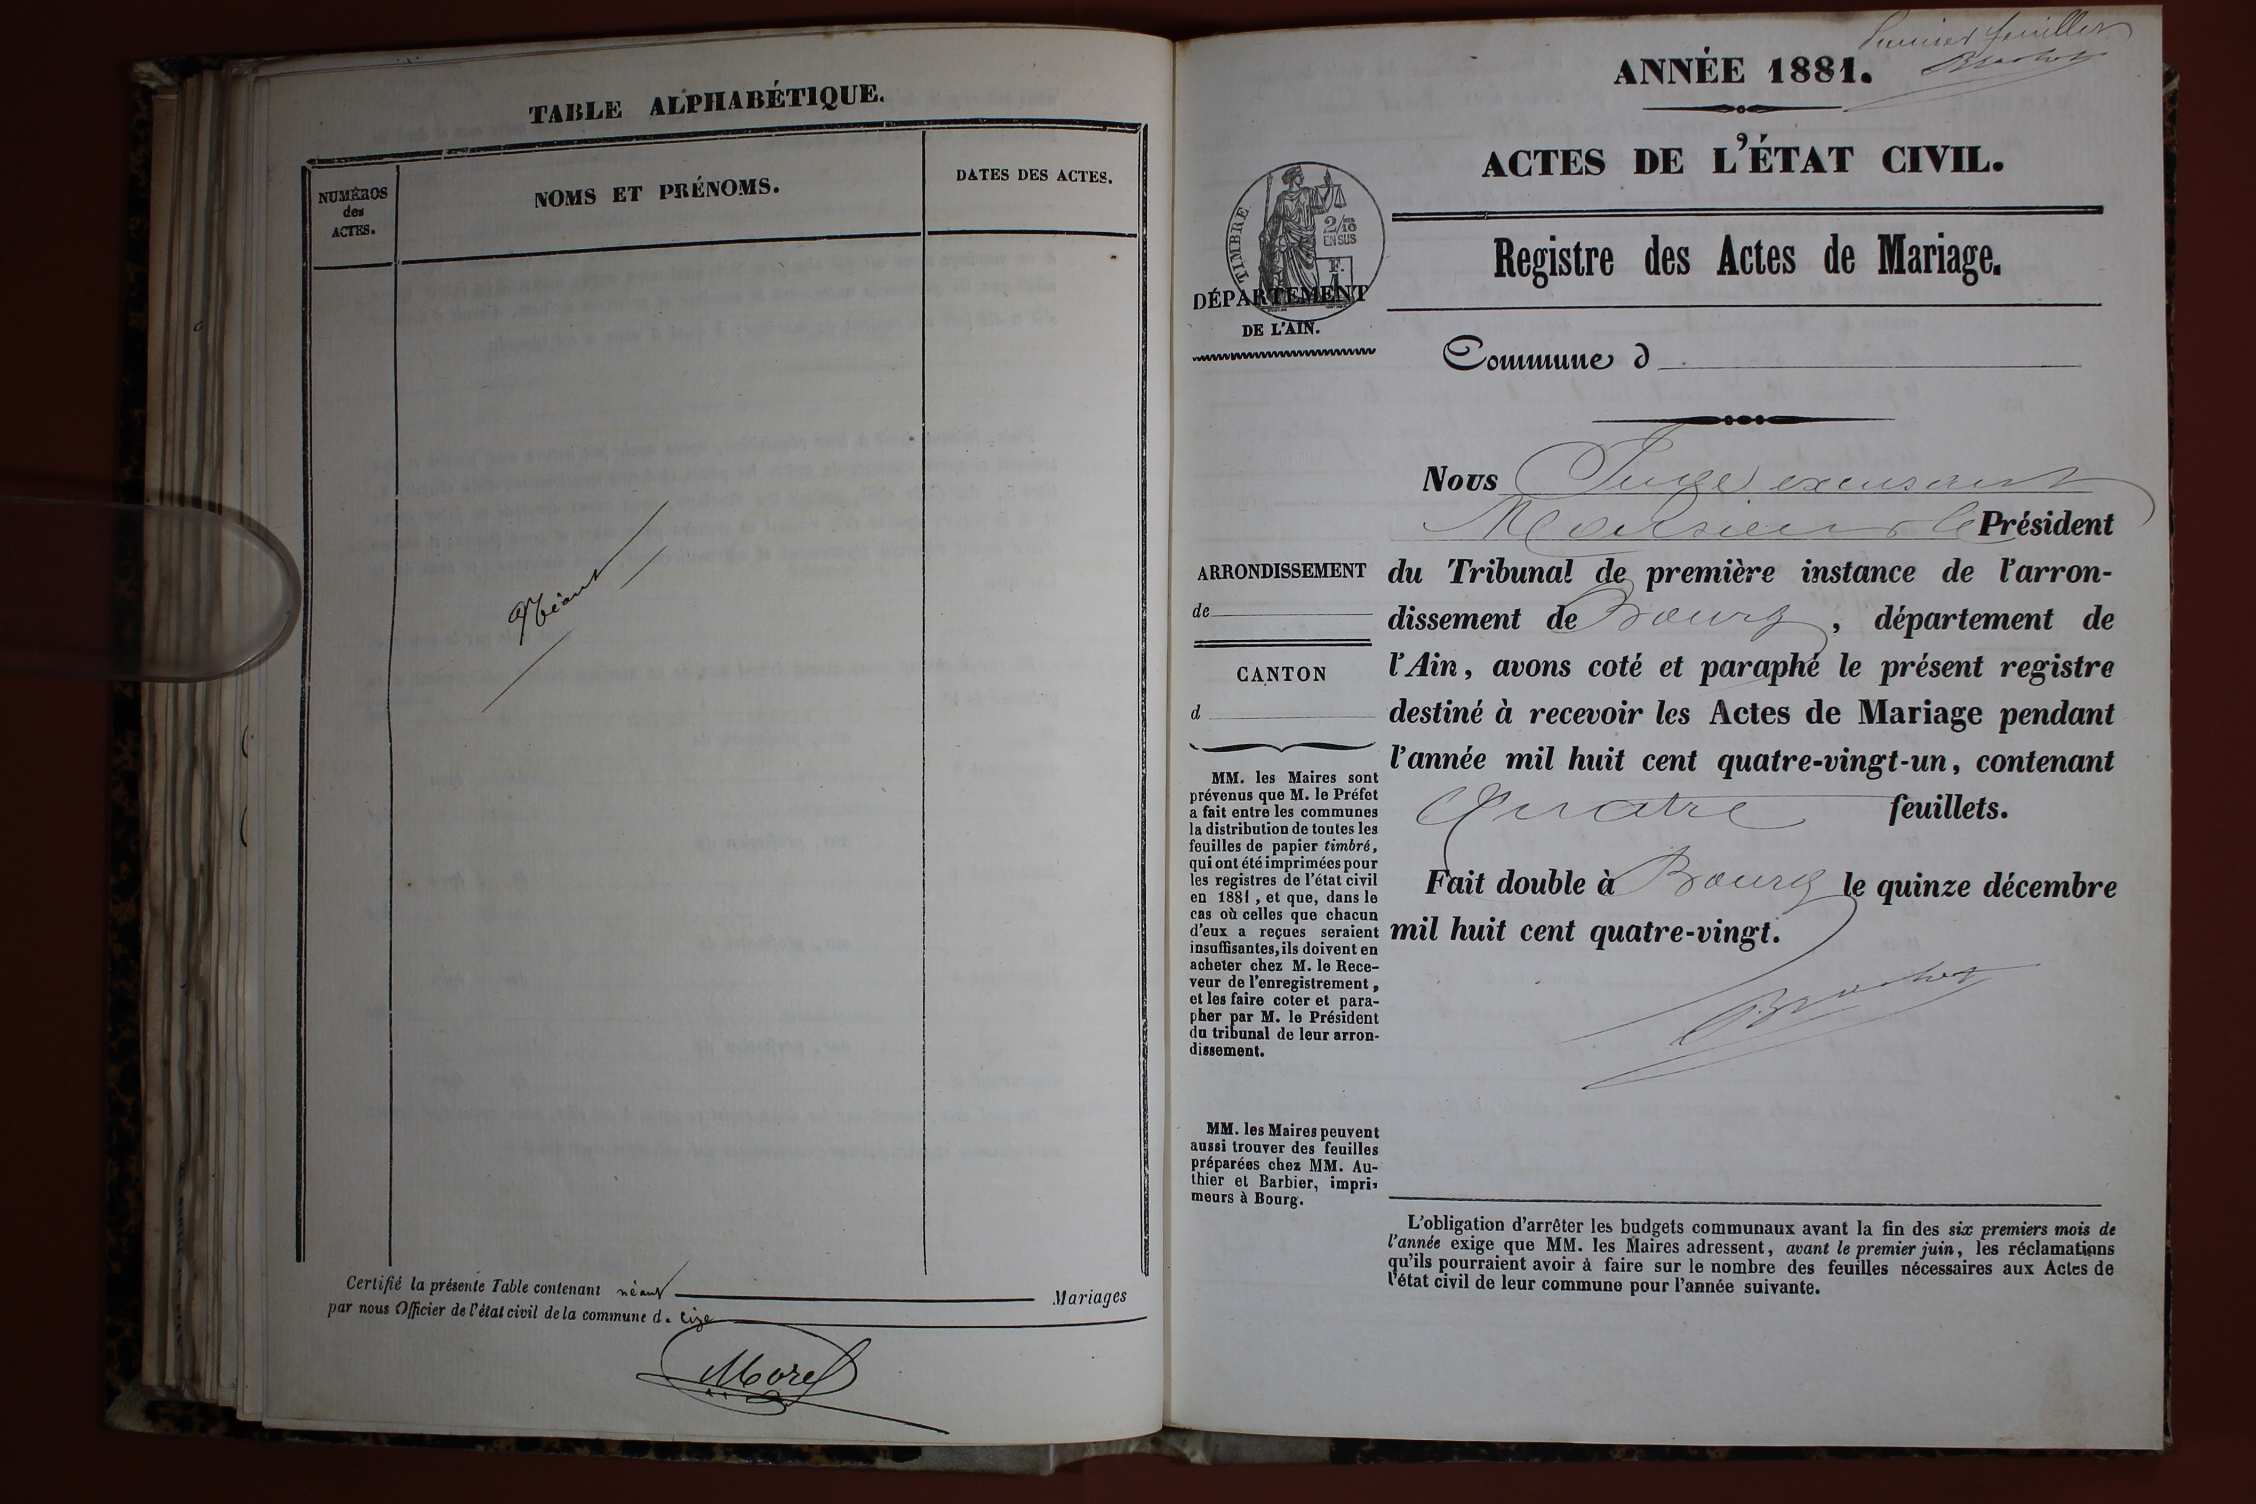 TABLE ALPHABÉTIQUE.
NUMÉROS
des
ACTES.
NOMS ET PRÉNOMS.
DATES DES ACTES.
Néant
Certifié la présente Table contenant néant Mariages
par nous Officier de l'état civil de la commune d. Cize
Morel
Premier feuillet
ANNÉE 1881.
ACTES DE L'ÉTAT CIVIL.
TIMBRE
2/10
EN SUS
F.
1
DÉPARTEMENT
DE L'AIN.
Registre des Actes de Mariage.
Commune d
ARRONDISSEMENT
de
CANTON
d
MM. les Maires sont
prévenus que M. le Préfet
a fait entre les communes
la distribution de toutes les
feuilles de papier timbré,
qui ont été imprimées pour
les registres de l'état civil
en 1881, et que, dans le
cas où celles que chacun
d'eux a reçues seraient
insuffisantes, ils doivent en
acheter chez M. le Rece-
veur de l'enregistrement,
et les faire coter et para-
pher par M. le Président
du tribunal de leur arron-
dissement.
MM. les Maires peuvent
aussi trouver des feuilles
préparées chez MM. Au-
thier et Barbier, impri-
meurs à Bourg.
Nous Juge excusant
Monsieur le Président
du Tribunal de première instance de l'arron-
dissement de Bourg, département de
l'Ain, avons coté et paraphé le présent registre
destiné à recevoir les Actes de Mariage pendant
l'année mil huit cent quatre-vingt-un, contenant
Quatre feuillets.
Fait double à Bourg le quinze décembre
mil huit cent quatre-vingt.
L'obligation d'arrêter les budgets communaux avant la fin des six premiers mois de
l'année exige que MM. les Maires adressent, avant le premier juin, les réclamations
qu'ils pourraient avoir à faire sur le nombre des feuilles nécessaires aux Actes de
l'état civil de leur commune pour l'année suivante.